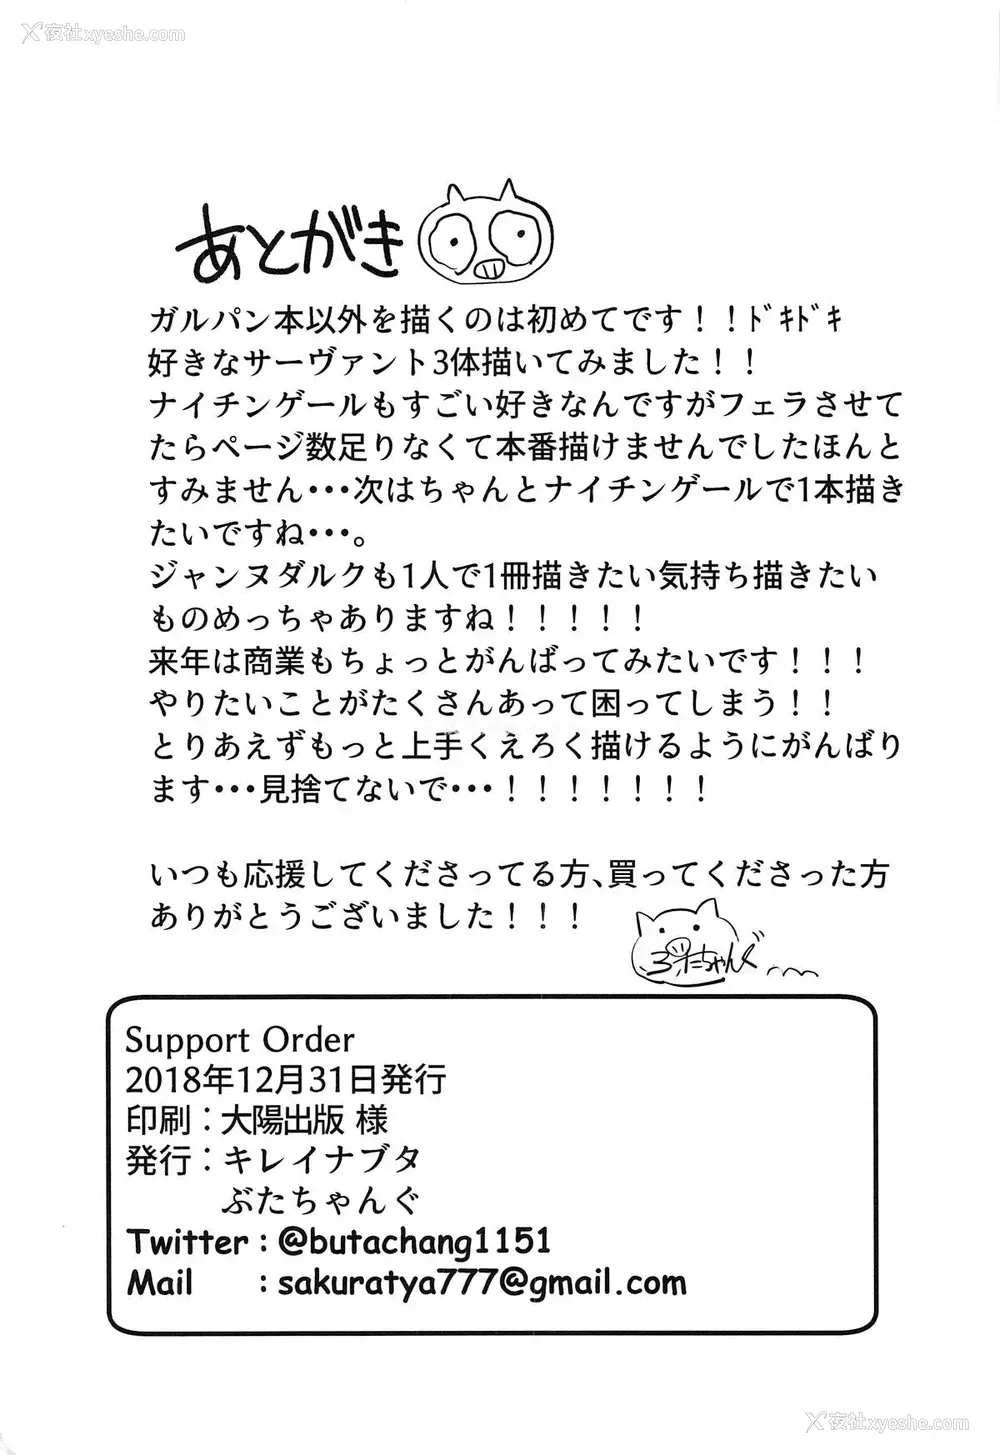 夜社xyeshe.com
あとがき
ガルパン本以外を描くのは初めてです！！ﾄﾞｷﾄﾞｷ
好きなサーヴァント3体描いてみました！！
ナイチンゲールもすごい好きなんですがフェラさせて
たらページ数足りなくて本番描けませんでしたほんと
すみません・・・次はちゃんとナイチンゲールで1本描き
たいですね・・・。
ジャンヌダルクも1人で1冊描きたい気持ち描きたい
ものめっちゃありますね！！！！！
来年は商業もちょっとがんばってみたいです！！！
やりたいことがたくさんあって困ってしまう！！
とりあえずもっと上手くえろく描けるようにがんばり
ます・・・見捨てないで・・・！！！！！！！
いつも応援してくださってる方、買ってくださった方
ありがとうございました！！！
ぶたちゃんぐ
Support Order
2018年12月31日発行
印刷：大陽出版 様
発行：キレイナブタ
ぶたちゃんぐ
Twitter : @butachang1151
Mail : sakuratya777@gmail.com
夜社xyeshe.com